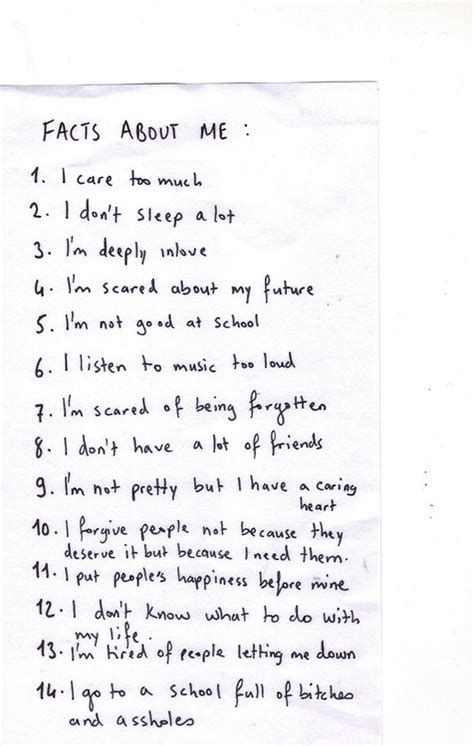 FACTS ABOUT ME :
1. I care too much
2. I don't sleep a lot
3. I'm deeply inlove
4. I'm scared about my future
5. I'm not good at school
6. I listen to music too loud
7. I'm scared of being forgotten
8. I don't have a lot of friends
9. I'm not pretty but I have a caring
heart
10. I forgive people not because they
deserve it but because I need them.
11. I put people's happiness before mine
12. I don't know what to do with
my life.
13. I'm tired of people letting me down
14. I go to a school full of bitches
and assholes